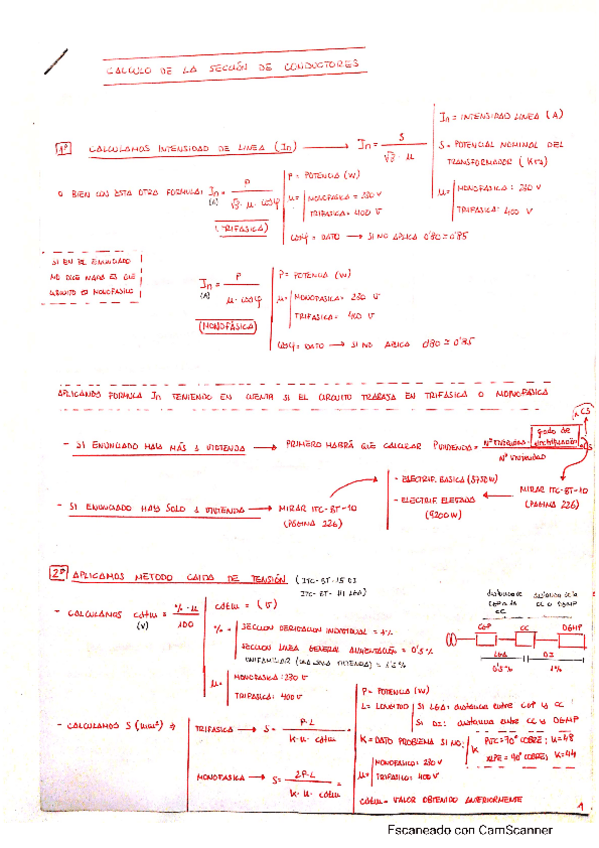 CALCULO DE LA SECCIÓN DE CONDUCTORES
1º CALCULAMOS INTENSIDAD DE LINEA (In) → In = S / √3 · u
In = INTENSIDAD LINEA (A)
S = POTENCIAL NOMINAL DEL
TRANSFORMADOR
u= MONOFASICA: 230 V
TRIFASICA: 400 V
O BIEN CON ESTA OTRA FORMULA: In (A) = P / √3 · u · cosφ
(TRIFASICA)
P= POTENCIA (W)
u= MONOFASICA = 230 V
TRIFASICA = 400 V
cosφ = DATO → SI NO APLICA 0'80 ≅ 0'85
SI EN EL ENUNCIADO
NO DICE NADA ES QUE
CIRCUITO ES MONOFASICO
In (A) = P / u · cosφ
(MONOFÁSICA)
P= POTENCIA (W)
u= MONOFASICA = 230 V
TRIFASICA = 400 V
cosφ = DATO → SI NO APLICA 0'80 ≅ 0'85
APLICANDO FORMULA In TENIENDO EN CUENTA SI EL CIRCUITO TRABAJA EN TRIFASICA O MONOFASICA
- SI ENUNCIADO HAY MÁS 1 VIVIENDA → PRIMERO HABRÁ QUE CALCULAR Pvivienda = Nº viviendas · grado de electrificación · CS / Nº VIVIENDAS
- SI ENUNCIADO HAY SOLO 1 VIVIENDA → MIRAR ITC-BT-10
(PÁGINA 226)
- ELECTRIF. BASICA (5750W)
- ELECTRIF. ELEVADA
(9200W)
MIRAR ITC-BT-10
(PAGINA 226)
2º APLICAMOS METODO CAIDA DE TENSIÓN (ITC-BT-15 DI
ITC-BT-14 LGA)
- CALCULAMOS cdtm (V) = % · u / 100
cdtm = (V)
% = SECCION DERIVACION INDIVIDUAL = 1%
SECCION LINEA GENERAL ALIMENTACIÓN = 0'5%
u= MONOFASICA: 230 V
TRIFASICA: 400 V
CGP CC DGMP
LGA DI
0'5% 1%
- CALCULAMOS S (mm²) ⇒ TRIFASICA → S = P·L / K·u·cdtm
MONOFASICA → S = 2P·L / K·u·cdtm
P= POTENCIA (W)
L= LONGITUD SI LGA: distancia entre CGP y CC
SI DI: distancia entre CC y DGMP
K= DATO PROBLEMA SI NO: K PVC=70° COBRE; K=48
XLPE = 90° COBRE; K=44
u= MONOFASICO: 230 V
TRIFASICO: 400 V
cdtm = VALOR OBTENIDO ANTERIORMENTE
1
Escaneado con CamScanner